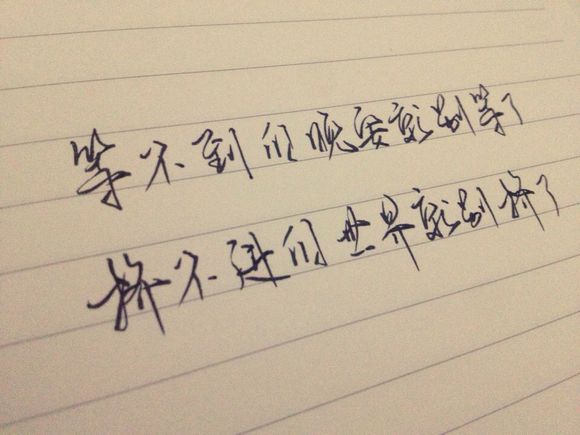 等不到的晚安就别等了
挤不进的世界就别挤了